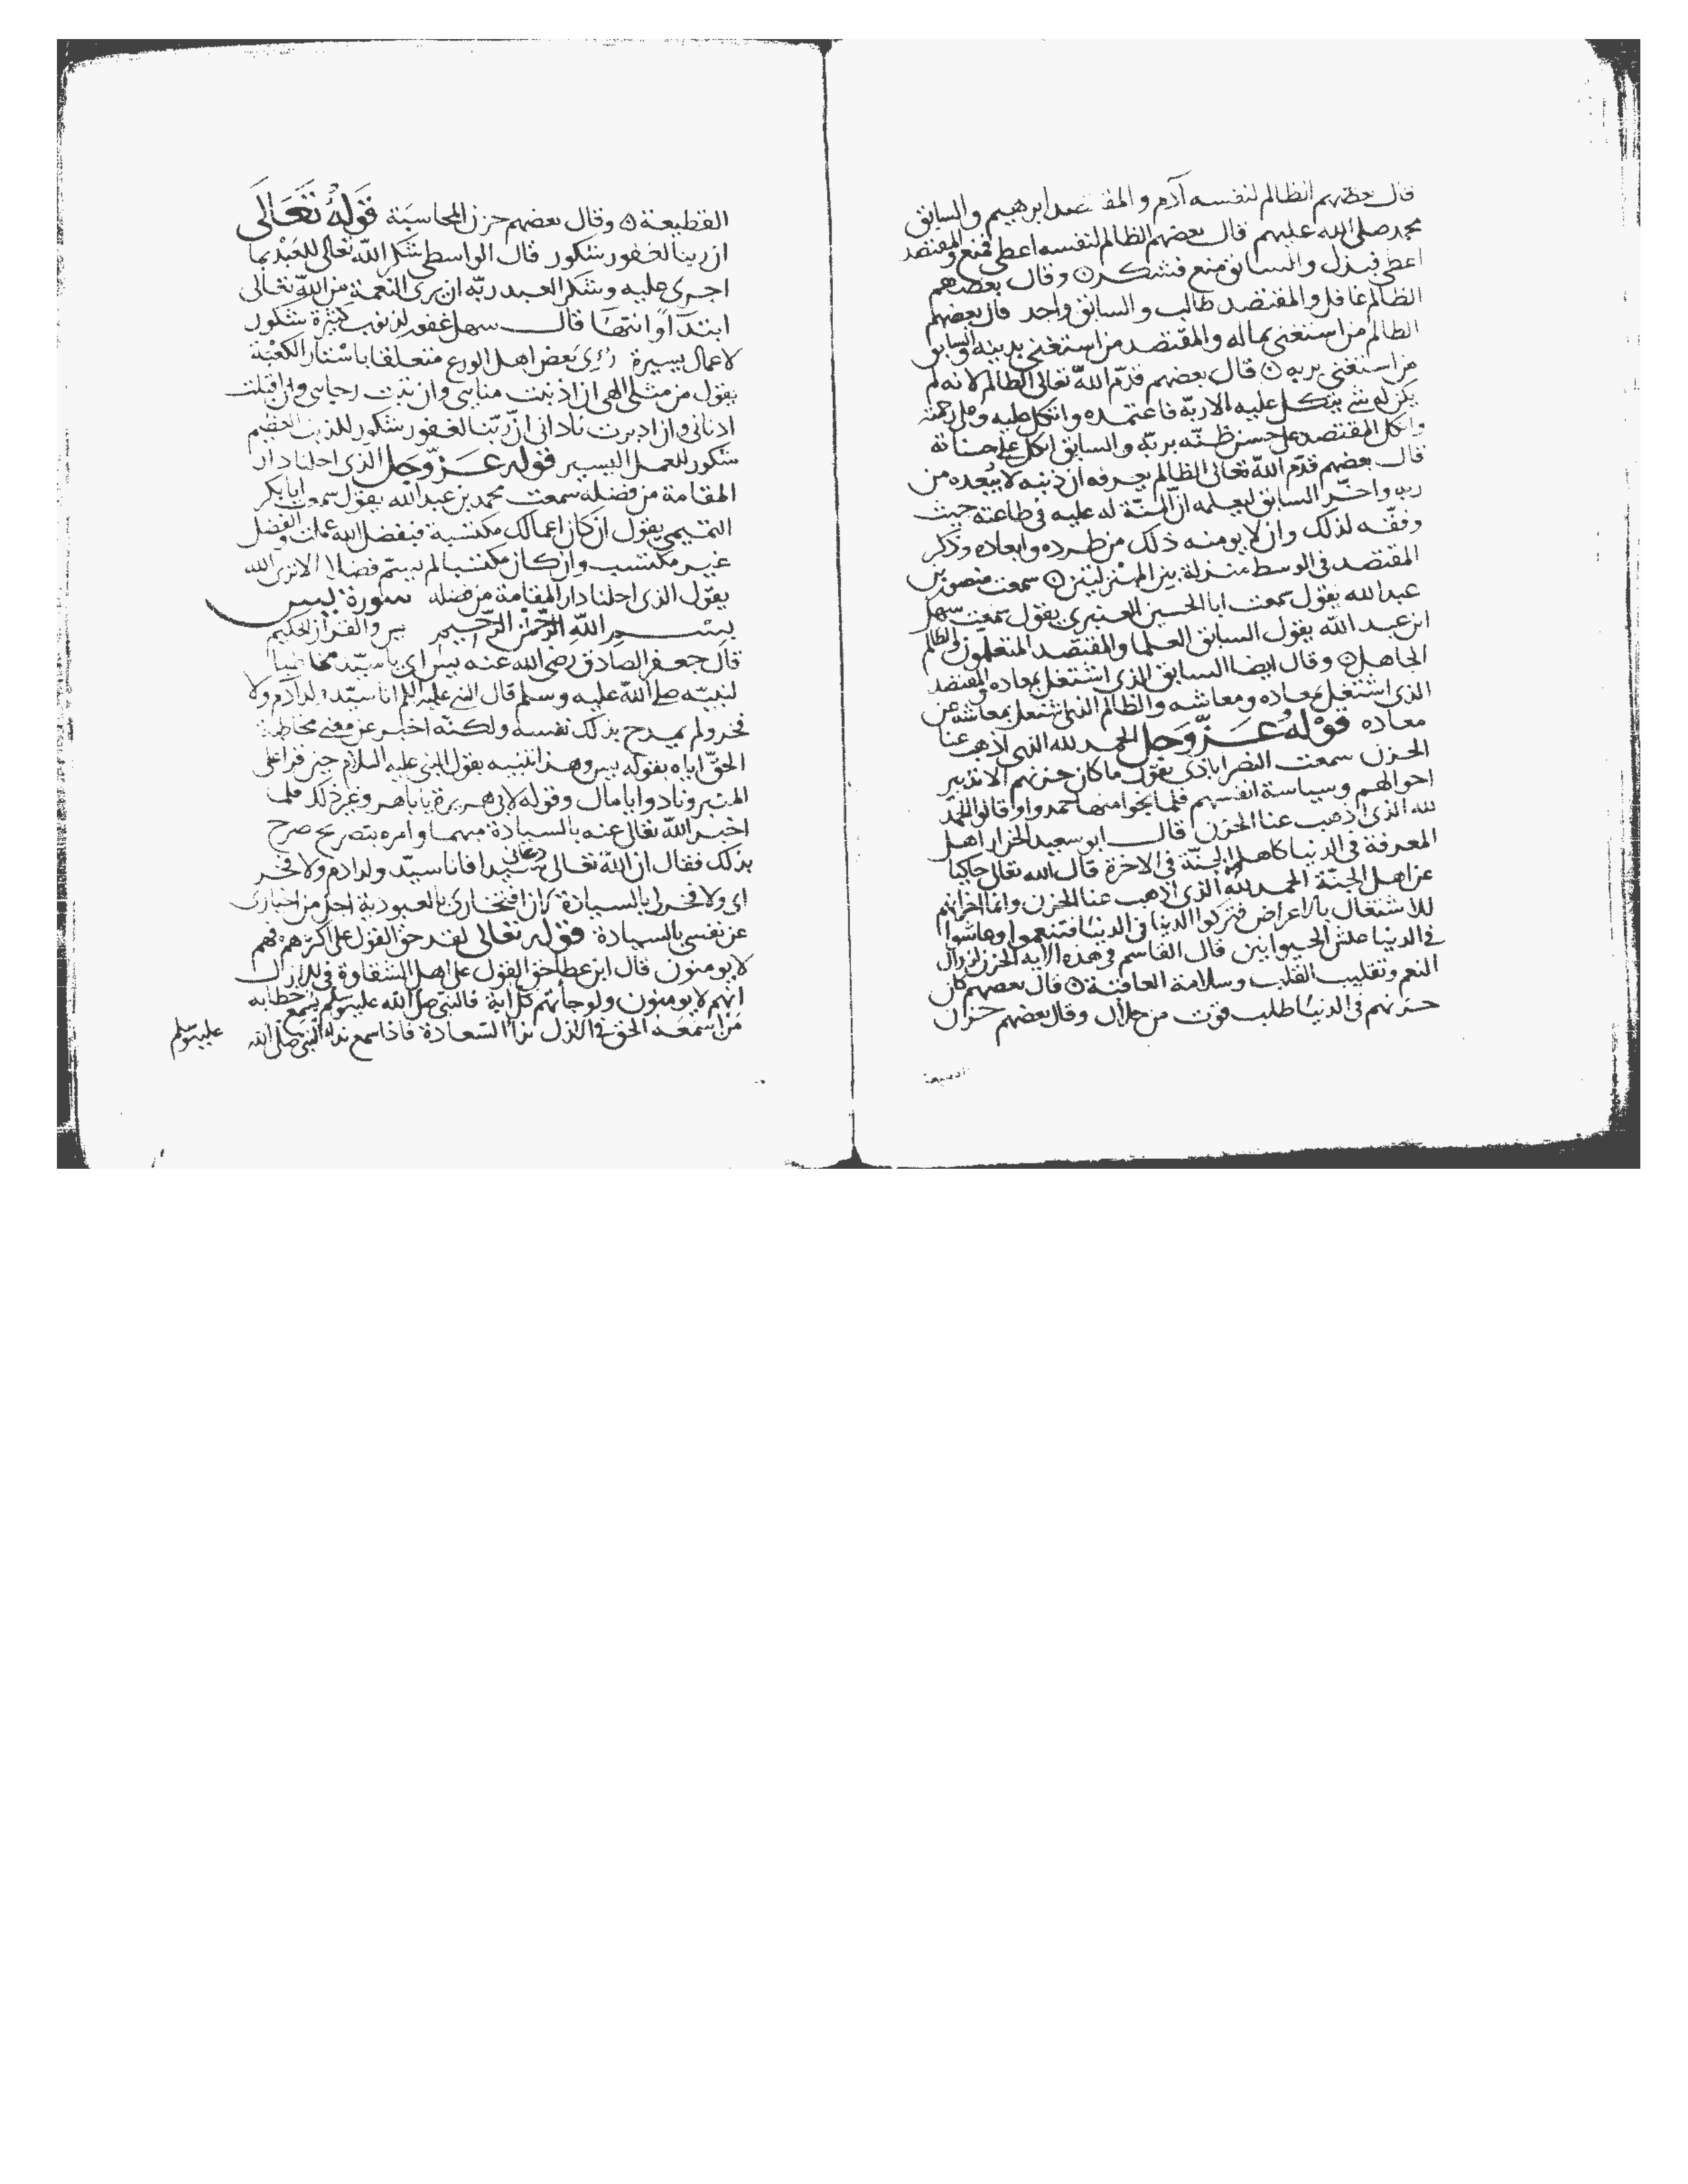 قال بعضهم الظالم لنفسه آدم والمقتصد ابرهيم والسابق
محمد صلى الله عليهم قال بعضهم الظالم لنفسه اعطى فمنع والمقتصد
اعطى فبذل والسابق منع فشكر ۞ وقال بعضهم
الظالم غافل والمقتصد طالب والسابق واجد قال بعضهم
الظالم من استغنى بماله والمقتصد من استغنى بدينه والسابق
من استغنى بربه ۞ قال بعضهم قدّم الله تعالى الظالم لانه لم
يكن له شي يتكل عليه الا ربّه فاعتمده واتكل عليه وعلى رحمته
واتكل المقتصد على حسن ظنّه بربّه والسابق اتكل على حسناته
قال بعضهم قدّم الله تعالى الظالم يعرفه ان ذنبه لا يُبعده من
ربه واخّر السابق ليعلمه انّ المنّة له عليه في طاعته حيث
وفقّه لذلك وان لا يومنه ذلك من طرده وابعاده وذكر
المقتصد في الوسط منزلة بين المنزلتين ۞ سمعت منصور بن
عبد الله يقول سمعت ابا الحسين العنبرى يقول سمعت سهل
ابن عبد الله يقول السابق العلما والمقتصد المتعلمون والظالم
الجاهل ۞ وقال ايضا السابق الذى اشتغل بمعاده والمقتصد
الذى اشتغل بمعاده ومعاشه والظالم الذى اشتغل بمعاشه عن
معاده قوْلهُ عَزّ وَجل الحمد لله الذى اذهب عنا
الحزن سمعت النصراباذى يقول ما كان حزنهم الا تدبير
احوالهم وسياسة انفسهم فلما نجوا منها حمدوا وقالوا الحمد
لله الذى اذهب عنا الحزن قال ابو سعيد الخراز اهل
المعرفة في الدنيا كاهل الجنّة في الاخرة قال الله تعالى حاكيا
عن اهل الجنّة الحمد لله الذى اذهب عنا الحزن وانما احزانهم
للاشتغال بالاعراض فتركوا الدنيا في الدنيا فتنعموا وعاشوا
في الدنيا عيش الحيوانين قال القاسم في هذه الآية الحزن لزوال
النعم وتقليب القلب وسلامة العاقبة ۞ قال بعضهم كان
حزنهم في الدنيا طلب قوت من حلال وقال بعضهم حزن
القطيعة ۞ وقال بعضهم حزن المحاسبَة قَولهُ تَعَالَى
ان ربنا لغفور شكور قال الواسطى شكر الله تعالى للعَبْد بما
اجرى عليه وشكر العبد ربّه ان يرى النعمة من الله تعالى
ابتداً وانتها قال سهل غفور لذنوب كثيرة شكور
لاعمال يسيرة رُئِى بَعض اهل الورع متعلقا باسْتار الكعْبَة
يقول من مثلى الهى ان اذنبت منانى وان تبت رجانى وان اقبلت
ادنانى وان ادبرت نادانى انّ ربّنا لغفور شكور للذنب العظيم
شكور للعمل اليسير قوله عَزّ وَجَل الذى احلنا دار
المقامة من فضله سمعت محمد بن عبد الله يقول سمعت ابا بكر
التميمى يقول ان كان اعمالك مكتسبة فبفضل الله عملت والفضل
غير مكتسب وان كان مكتسبا لم يسمّ فضلا الا ترى الله
يقول الذى احلنا دار المقامة من فضله سورة يس
بسْــمِ اللهِ الرّحْمٰنِ الرّحِيم يس والقرآن الحكيم
قال جعفر الصادق رضى الله عنه يس اى يا سيّد مخاطبا
لنبيّه صلى الله عليه وسلم قال النبي عليه السلم انا سيّد ولد ادم ولا
فخر ولم يمدح بذلك نفسه ولكنّه اخبر عن معنى مخاطبة
الحقّ اياه بقوله يس وهذا تشبيه بقول النبي عليه السلام حين قرا على
المنبر ونادوا يا مال وقوله لابى هريرة يا باهر وغير ذلك فلما
اخبر الله تعالى عنه بالسيادة مبهما وامره بتصريح صرح
بذلك فقال ان الله تعالى دعانى سيدا فانا سيّد ولد ادم ولا فخر
اى ولا فخر لى بالسيادة لان افتخارى بالعبودية اجل من اخبارى
عن نفسى بالسيادة قوله تعالى لقد حق القول على اكثرهم فهم
لا يومنون قال ابن عطا حق القول على اهل الشقاوة في الازل
انهم لا يومنون ولو جاتهم كلّ اية فالنبّى صلى الله عليه وسلم يُسْمع خطابه
مَنْ اسْمَعَهُ الحق في الازل نداء السّعادة فاذا سمع نداء النبي صلى الله
عليه وسلم